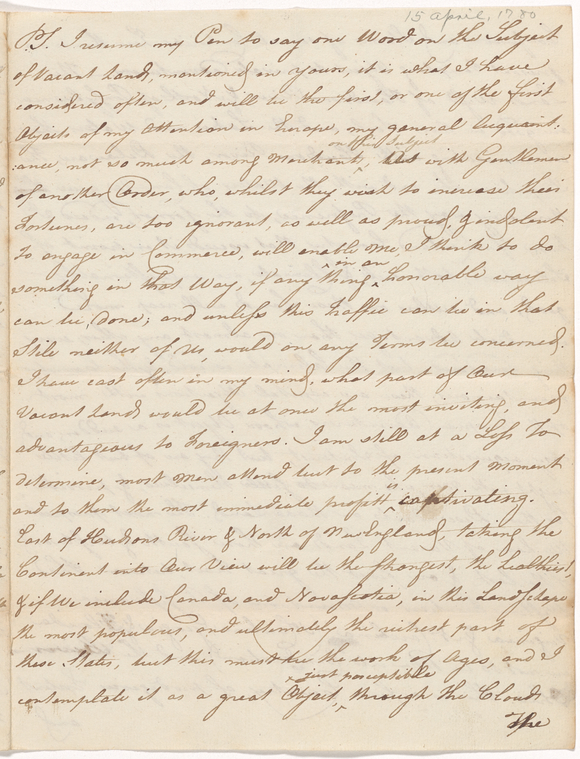 15 April, 1780
P.S. I resume my Pen to say one Word on the Subject
of Vacant Lands, mentioned in yours, it is what I have
considered often, and will be the first, or one of the first
Objects of my Attention in Europe, my general Acquaint:
on this Subject
:ance, not so much among Merchants, but with Gentlemen
of another Order, who, whilst they wish to increase their
Fortunes, are too ignorant, as well as proud, & indolent
to engage in Commerce, will enable me, I think to do
in an
something in that Way, if any thing honorable way
can be done; and unless this Traffic can be in that
Stile neither of Us, would on any Terms be concerned.
I have cast often in my mind, what part of Our
Vacant Lands would be at once the most inviting, and
advantageous to Foreigners. I am still at a Loss to
determine, most Men attend but to the present moment
is
and to them the most immediate profitt captivating.
East of Hudsons River & North of New England, taking the
Continent into Our View will be the strongest, the healthiest,
& if We include Canada, and Novascotia, in this Landschape
the most populous, and ultimately the richest part of
these States, but this must be the work of Ages, and I
just perceptible
contemplate it as a great Object, through the Clouds
The